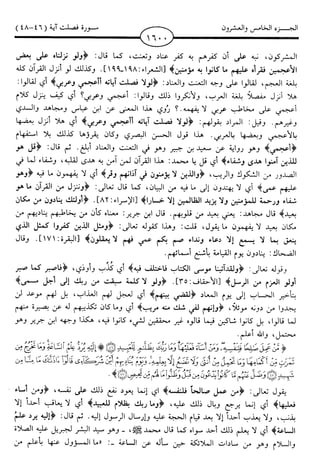 الجـزء الخامس والعشرون
١٦٠٠
سورة فصلت آية (٤٦ - ٤٨)
المشركون، نبه على أن كفرهم به كفر عناد وتعنت، كما قال: ﴿ولو نزلناه على بعض
الأعجمين فقرأه عليهم ما كانوا به مؤمنين﴾ [الشعراء: ١٩٨-١٩٩]. وكذلك لو أنزل القرآن كله
بلغة العجم، لقالوا على وجه التعنت والعناد: ﴿لولا فصلت آياته أأعجمي وعربي﴾ أي لقالوا:
هلا أنزل مفصلاً بلغة العرب، ولأنكروا ذلك وقالوا: أعجمي وعربي؟ أي كيف ينزل كلام
أعجمي على مخاطب عربي لا يفهمه.؟ روي هذا المعنى عن ابن عباس ومجاهد والسدي
وغيرهم. وقيل: المراد بقولهم: ﴿لولا فصلت آياته أأعجمي وعربي﴾ أي هلا أنزل بعضها
بالأعجمي وبعضها بالعربي. هذا قول الحسن البصري وكان يقرؤها كذلك بلا استفهام
﴿أعجمي﴾ وهو رواية عن سعيد بن جبير وهو في التعنت والعناد أبلغ. ثم قال: ﴿قل هو
للذين آمنوا هدى وشفاء﴾ أي قل يا محمد: هذا القرآن لمن آمن به هدى لقلبه، وشفاء لما في
الصدور من الشكوك والريب، ﴿والذين لا يؤمنون في آذانهم وقر﴾ أي لا يفهمون ما فيه ﴿وهو
عليهم عمى﴾ أي لا يهتدون إلى ما فيه من البيان، كما قال تعالى: ﴿وننزل من القرآن ما هو
شفاء ورحمة للمؤمنين ولا يزيد الظالمين إلا خساراً﴾ [الإسراء: ٨٢]. ﴿أولئك ينادون من مكان
بعيد﴾ قال مجاهد: يعني بعيد من قلوبهم. قال ابن جرير: معناه كأن من يخاطبهم يناديهم من
مكان بعيد لا يفهمون ما يقول، قلت: وهذا كقوله تعالى: ﴿ومثل الذين كفروا كمثل الذي
ينعق بما لا يسمع إلا دعاء ونداء صم بكم عمي فهم لا يعقلون﴾ [البقرة: ١٧١]. وقال
الضحاك: ينادون يوم القيامة بأشنع أسمائهم.
وقوله تعالى: ﴿ولقد آتينا موسى الكتاب فاختلف فيه﴾ أي كُذّب وأوذي، ﴿فاصبر كما صبر
أولو العزم من الرسل﴾ [الأحقاف: ٣٥]. ﴿ولولا كلمة سبقت من ربك إلى أجل مسمى﴾
بتأخير الحساب إلى يوم المعاد ﴿لقضي بينهم﴾ أي لعجل لهم العذاب، بل لهم موعد لن
يجدوا من دونه موئلاً، ﴿وإنهم لفي شك منه مريب﴾ أي وما كان تكذيبهم له عن بصيرة منهم
لما قالوا، بل كانوا شاكين فيما قالوه غير محققين لشيء كانوا فيه، هكذا وجهه ابن جرير وهو
محتمل، والله أعلم.
يقول تعالى: ﴿من عمل صالحاً فلنفسه﴾ أي إنما يعود نفع ذلك على نفسه، ﴿ومن أساء
فعليها﴾ أي إنما يرجع وبال ذلك عليه، ﴿وما ربك بظلام للعبيد﴾ أي لا يعاقب أحداً إلا
بذنب، ولا يعذب أحداً إلا بعد قيام الحجة عليه وإرسال الرسول إليه. ثم قال: ﴿إليه يرد علم
الساعة﴾ أي لا يعلم ذلك أحد سواه كما قال محمد ﷺ، - وهو سيد البشر لجبريل عليه الصلاة
والسلام وهو من سادات الملائكة حين سأله عن الساعة -: «ما المسؤول عنها بأعلم من